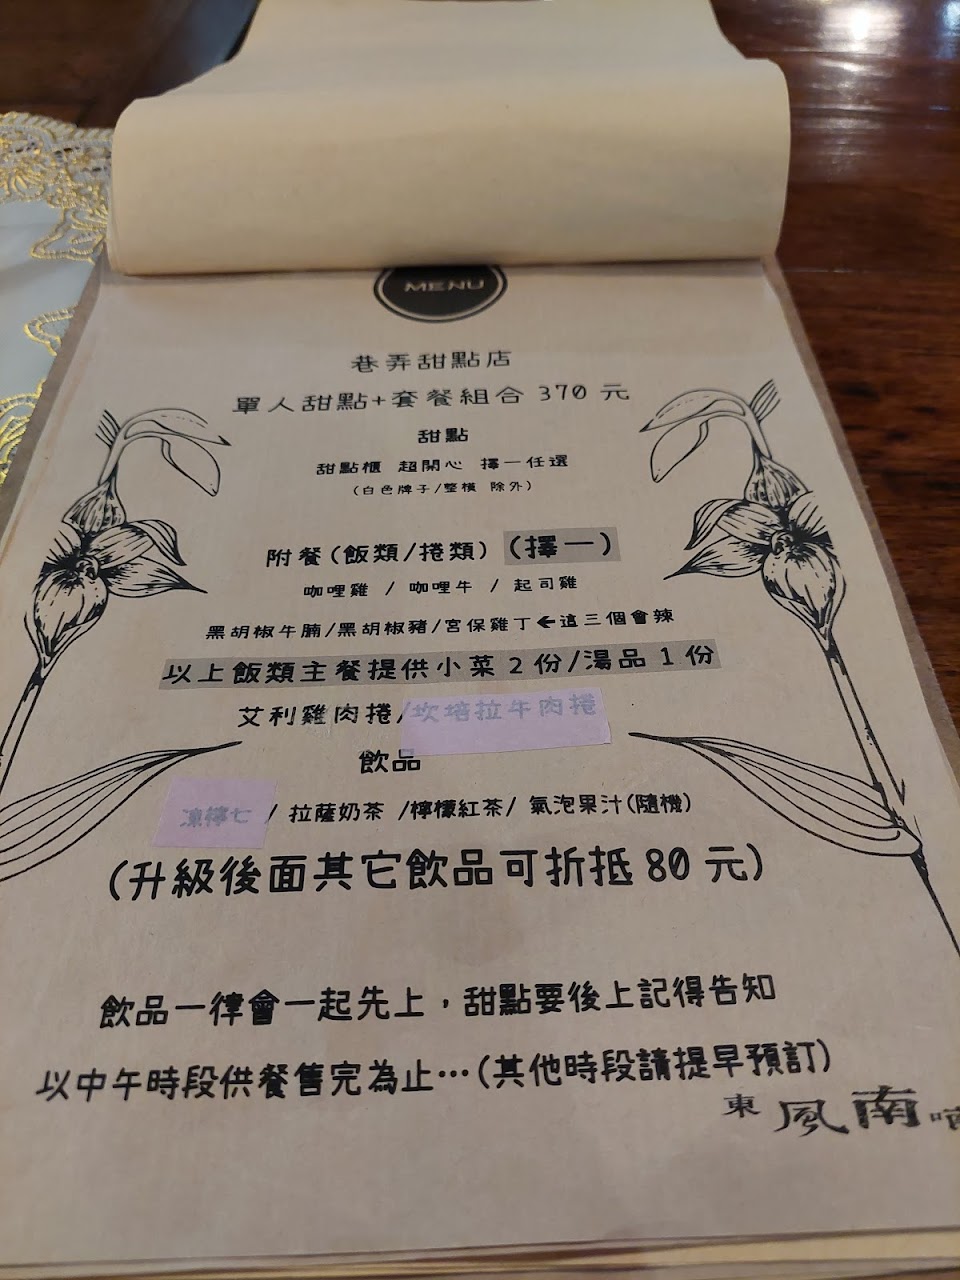 MENU
巷弄甜點店
單人甜點+套餐組合 370 元
甜點
甜點櫃 超開心 擇一任選
(白色牌子/整橫 除外)
附餐(飯類/捲類) (擇一)
咖哩雞 / 咖哩牛 / 起司雞
黑胡椒牛腩/黑胡椒豬/宮保雞丁←這三個會辣
以上飯類主餐提供小菜 2 份/湯品 1 份
艾利雞肉捲/坎培拉牛肉捲
飲品
凍檸七 / 拉薩奶茶 /檸檬紅茶/ 氣泡果汁(隨機)
(升級後面其它飲品可折抵 80 元)
飲品一律會一起先上，甜點要後上記得告知
以中午時段供餐售完為止…(其他時段請提早預訂)
東 風南